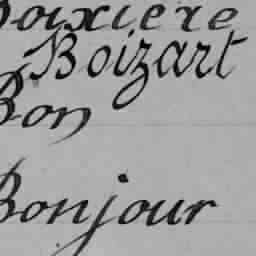 Boixiere
Boizart
Bon
Bonjour